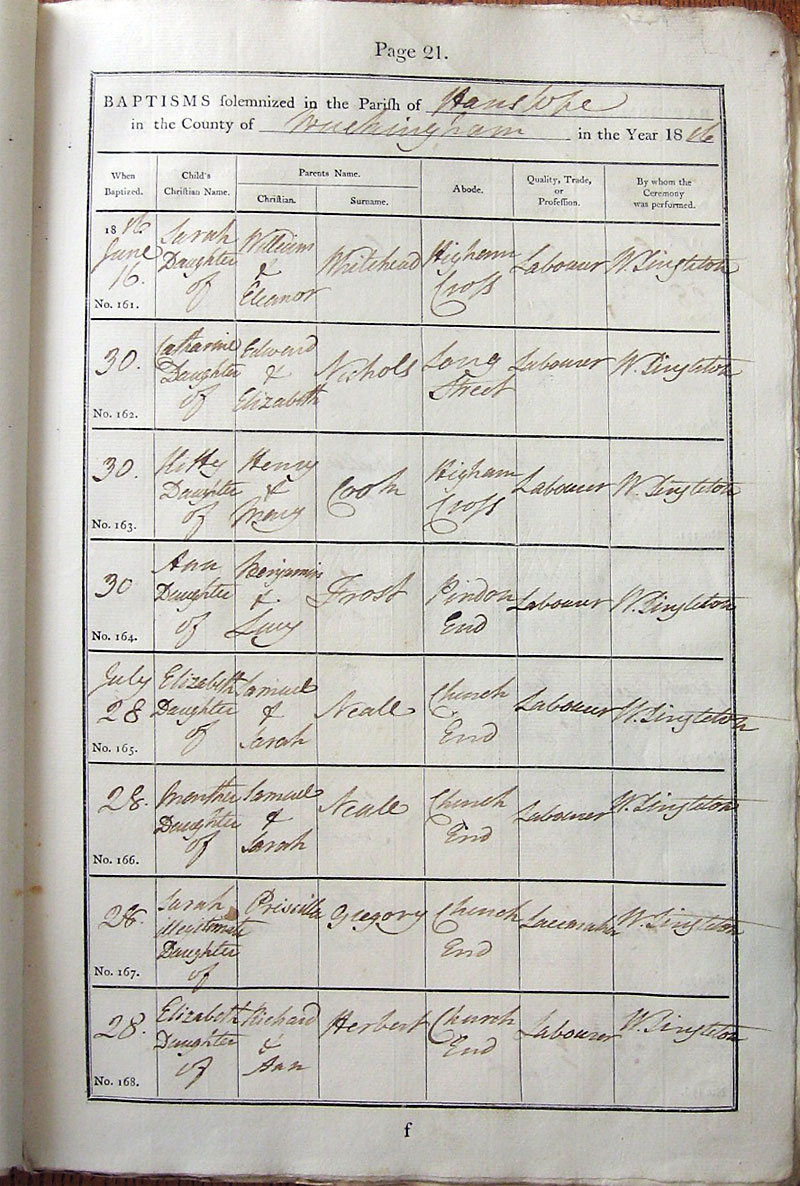 Page 21.
BAPTISMS solemnized in the Parish of Hanslope
in the County of Buckingham in the Year 1816
When Baptized.
Child's Christian Name.
Parents Name.
Christian.
Surname.
Abode.
Quality, Trade, or Profession.
By whom the Ceremony was performed.
1816
June
16.
No. 161.
Sarah
Daughter
of
William
&
Eleanor
Whitehead
Higham
Cross
Labourer
W. Singleton
30.
No. 162.
Catharine
Daughter
of
Edward
&
Elizabeth
Nichols
Long
Street
Labourer
W. Singleton
30.
No. 163.
Kitty
Daughter
of
Henry
&
Mary
Cook
Higham
Cross
Labourer
W. Singleton
30
No. 164.
Ann
Daughter
of
Benjamin
&
Lucy
Frost
Pindon
End
Labourer
W. Singleton
July
28
No. 165.
Elizabeth
Daughter
of
Samuel
&
Sarah
Neale
Church
End
Labourer
W. Singleton
28.
No. 166.
Daughter
of
Samuel
&
Sarah
Neale
Church
End
Labourer
W. Singleton
28.
No. 167.
Sarah
illegitimate
Daughter
of
Priscilla
Gregory
Church
End
Lacemaker
W. Singleton
28.
No. 168.
Elizabeth
Daughter
of
Richard
&
Ann
Herbert
Church
End
Labourer
W. Singleton
f